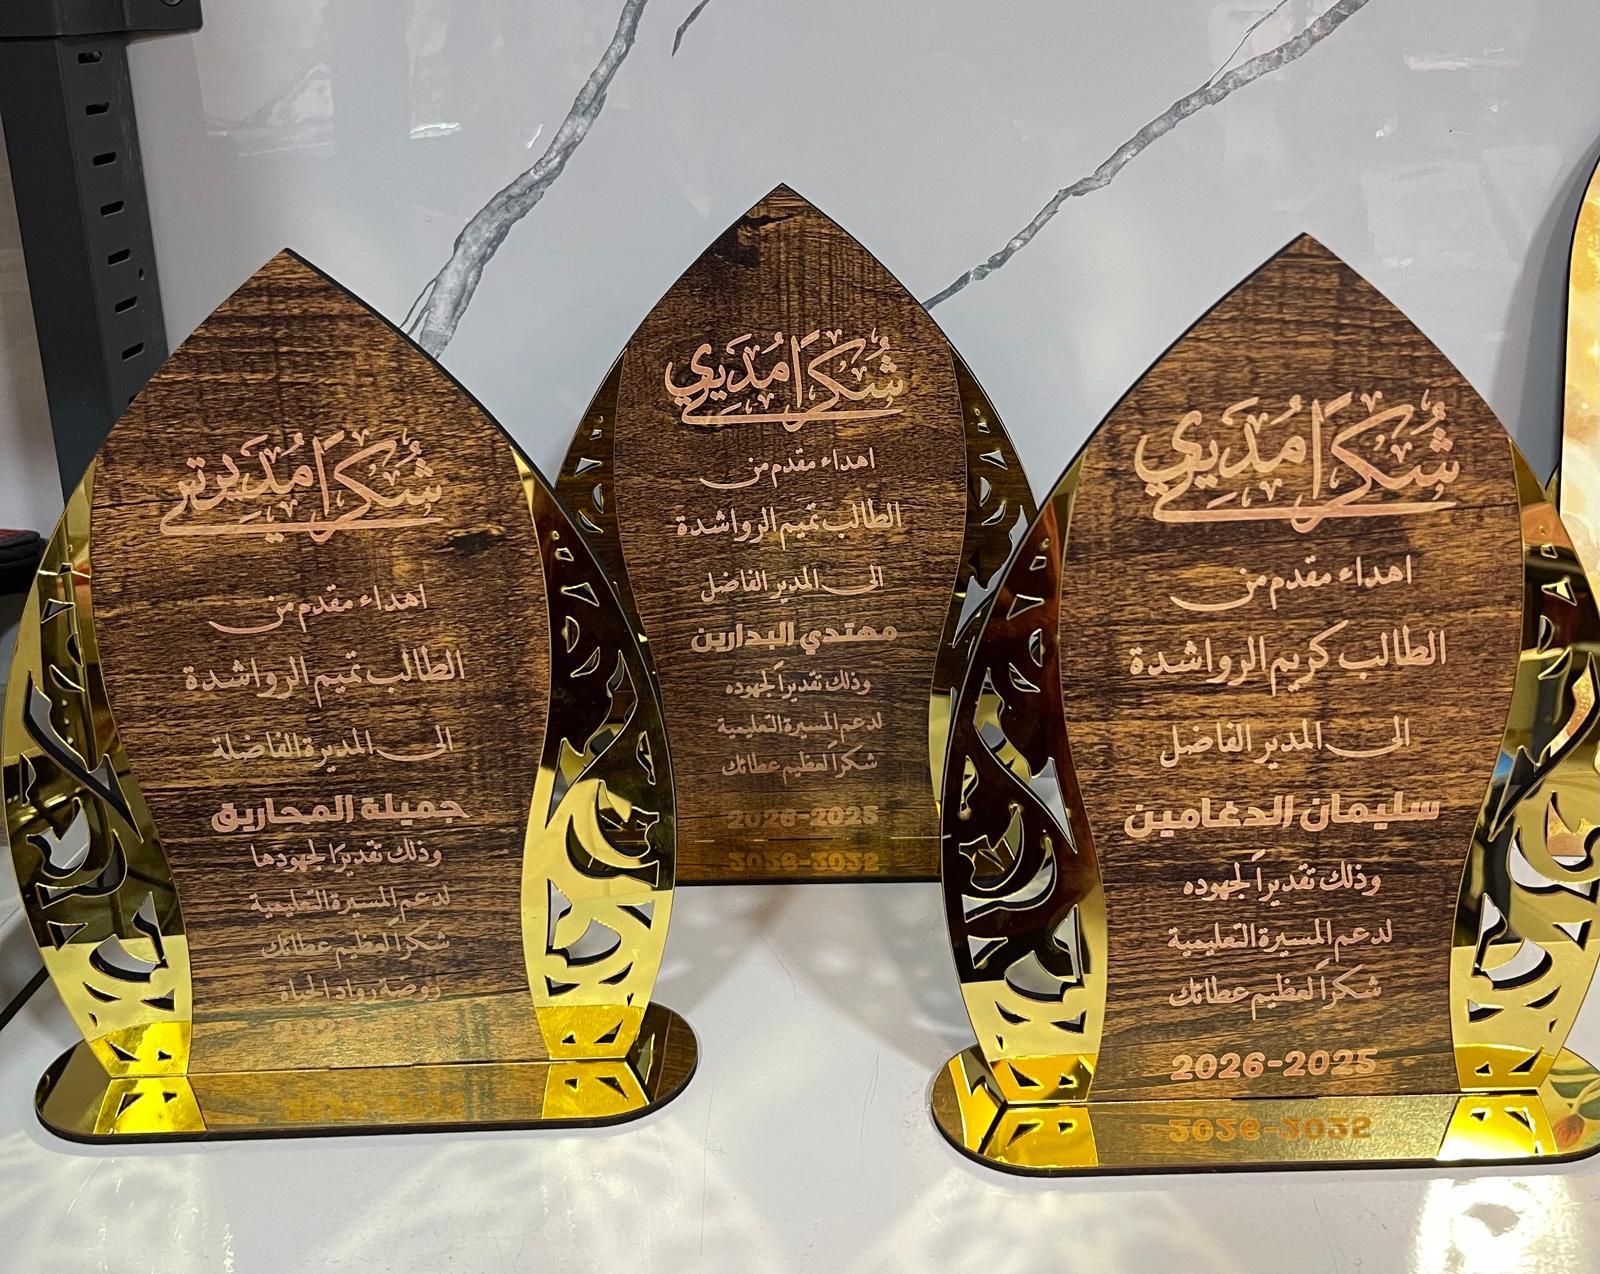 شكرا مديرتي
اهداء مقدم من
الطالب تميم الرواشدة
الى المديرة الفاضلة
جميلة المحاريق
وذلك تقديراً لجهودها
لدعم المسيرة التعليمية
شكراً لعظيم عطائك
روضة رواد الحياة
شُكراً مُديري
اهداء مقدم من
الطالب تميم الرواشدة
الى المدير الفاضل
مهتدي البدارين
وذلك تقديراً لجهوده
لدعم المسيرة التعليمية
شكراً لعظيم عطائك
2026-2025
شُكراً مُديري
اهداء مقدم من
الطالب كريم الرواشدة
الى المدير الفاضل
سليمان الدغامين
وذلك تقديراً لجهوده
لدعم المسيرة التعليمية
شكراً لعظيم عطائك
2026-2025